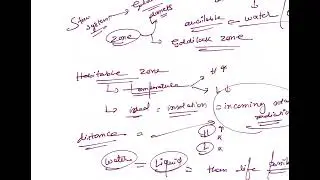 Star system → planets
zone available = water
→ Goldilock zone
Habitable zone
→ Temperature H
→ ideal = insolation = incoming radiation
distance = H
L
water = Liquid = then life possible